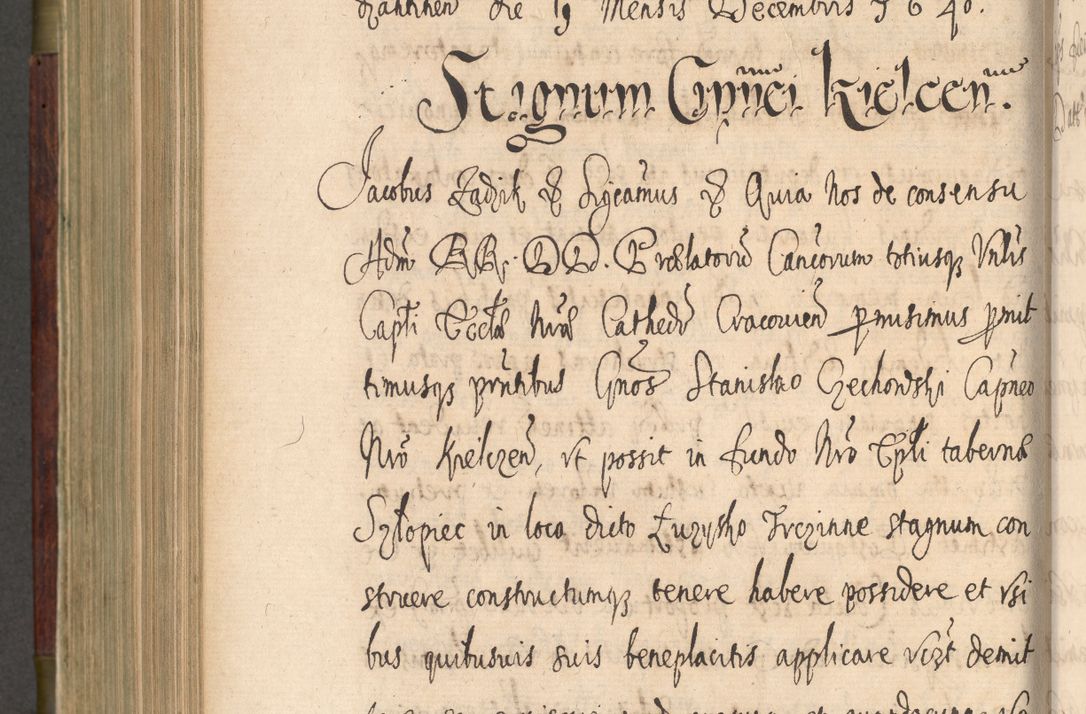 die 19 Mensis Decembris 1640.
Stagnum Gnnci Kielcen.
Jacobus Zadzik & Sycamus & Quia Nos de consensu
Adm RR. DD. Prælatorū Cancorum totiusq Vnlis
Capłi Eccłæ Nræ Cathedr Cracovien permisimus permit
timusq pntibus Gnos Stanisło Czechowski Capneo
Nrō Kielczen, vt possit in fundo Nrō Epłi tabernæ
Szłopiec in loco dicto Łuzysko Trczinne stagnum con
struere constructumq tenere habere possidere et vsi
bus quibusuis suis beneplacitis applicare vczt demit